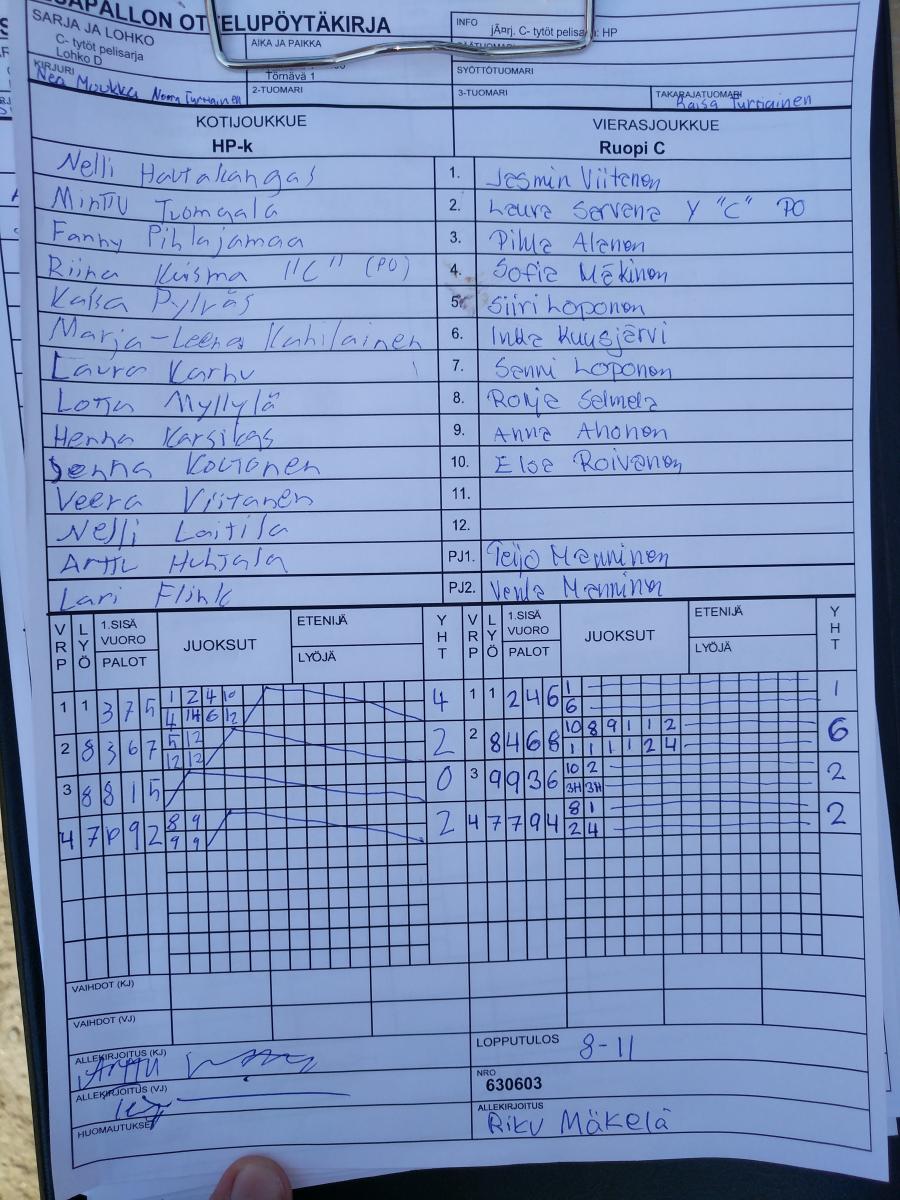 ESÄPALLON OTTELUPÖYTÄKIRJA
SARJA JA LOHKO
C- tytöt pelisarja
Lohko D
AIKA JA PAIKKA
Törnävä 1
INFO
jÃ¤rj. C- tytöt pelisarja: HP
KIRJURI
Nea Muukka Noora Turriainen
2-TUOMARI
SYÖTTÖTUOMARI
3-TUOMARI
TAKARAJATUOMARI
Raisa Turriainen
KOTIJOUKKUE
HP-k
VIERASJOUKKUE
Ruopi C
Nelli Hautakangas 1. Jasmin Viitanen
Minttu Tuomaala 2. Laura Servena Y "C" PO
Fanny Pihlajamaa 3. Pilma Alanen
Riina Kuisma "C" (PO) 4. Sofia Mäkinen
Kaisa Pylväs 5. Siiri Loponen
Marja-Leena Kahilainen 6. Inka Kuusjärvi
Laura Karhu 7. Sanni Loponen
Lotta Myllylä 8. Ronja Salmela
Henna Karsikas 9. Anna Ahonen
Jenna Koutonen 10. Elsa Roivanen
Veera Viitanen 11.
Nelli Laitila 12.
Arttu Huhtala PJ1. Teijo Manninen
Lari Flink PJ2. Venla Manninen
VRP LYÖ 1.SISÄ VUORO PALOT JUOKSUT ETENIJÄ LYÖJÄ YHT VRP LYÖ 1.SISÄ VUORO PALOT JUOKSUT ETENIJÄ LYÖJÄ YHT
1 1 3 7 5 1 2 4 10 4 1 1 2 4 6 1 1
4 14 6 12 6
2 8 3 6 7 5 12 2 2 8 4 6 8 10 8 9 1 1 2 6
12 12 1 1 1 1 2 4
3 8 8 1 5 0 3 9 9 3 6 10 2 2
3H 3H
4 7 P 9 2 8 9 2 4 7 7 9 4 8 1 2
9 9 2 4
VAIHDOT (KJ)
VAIHDOT (VJ)
ALLEKIRJOITUS (KJ)
Arttu
LOPPUTULOS 8-11
ALLEKIRJOITUS (VJ)
NRO
630603
HUOMAUTUKSET
ALLEKIRJOITUS
Riku Mäkelä